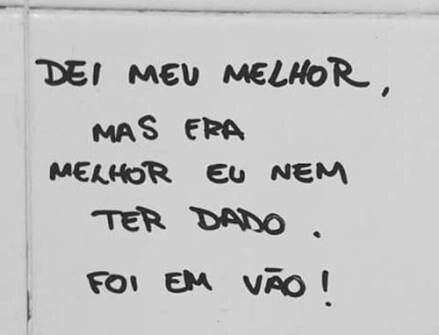 DEI MEU MELHOR,
MAS ERA
MELHOR EU NEM
TER DADO.
FOI EM VÃO!